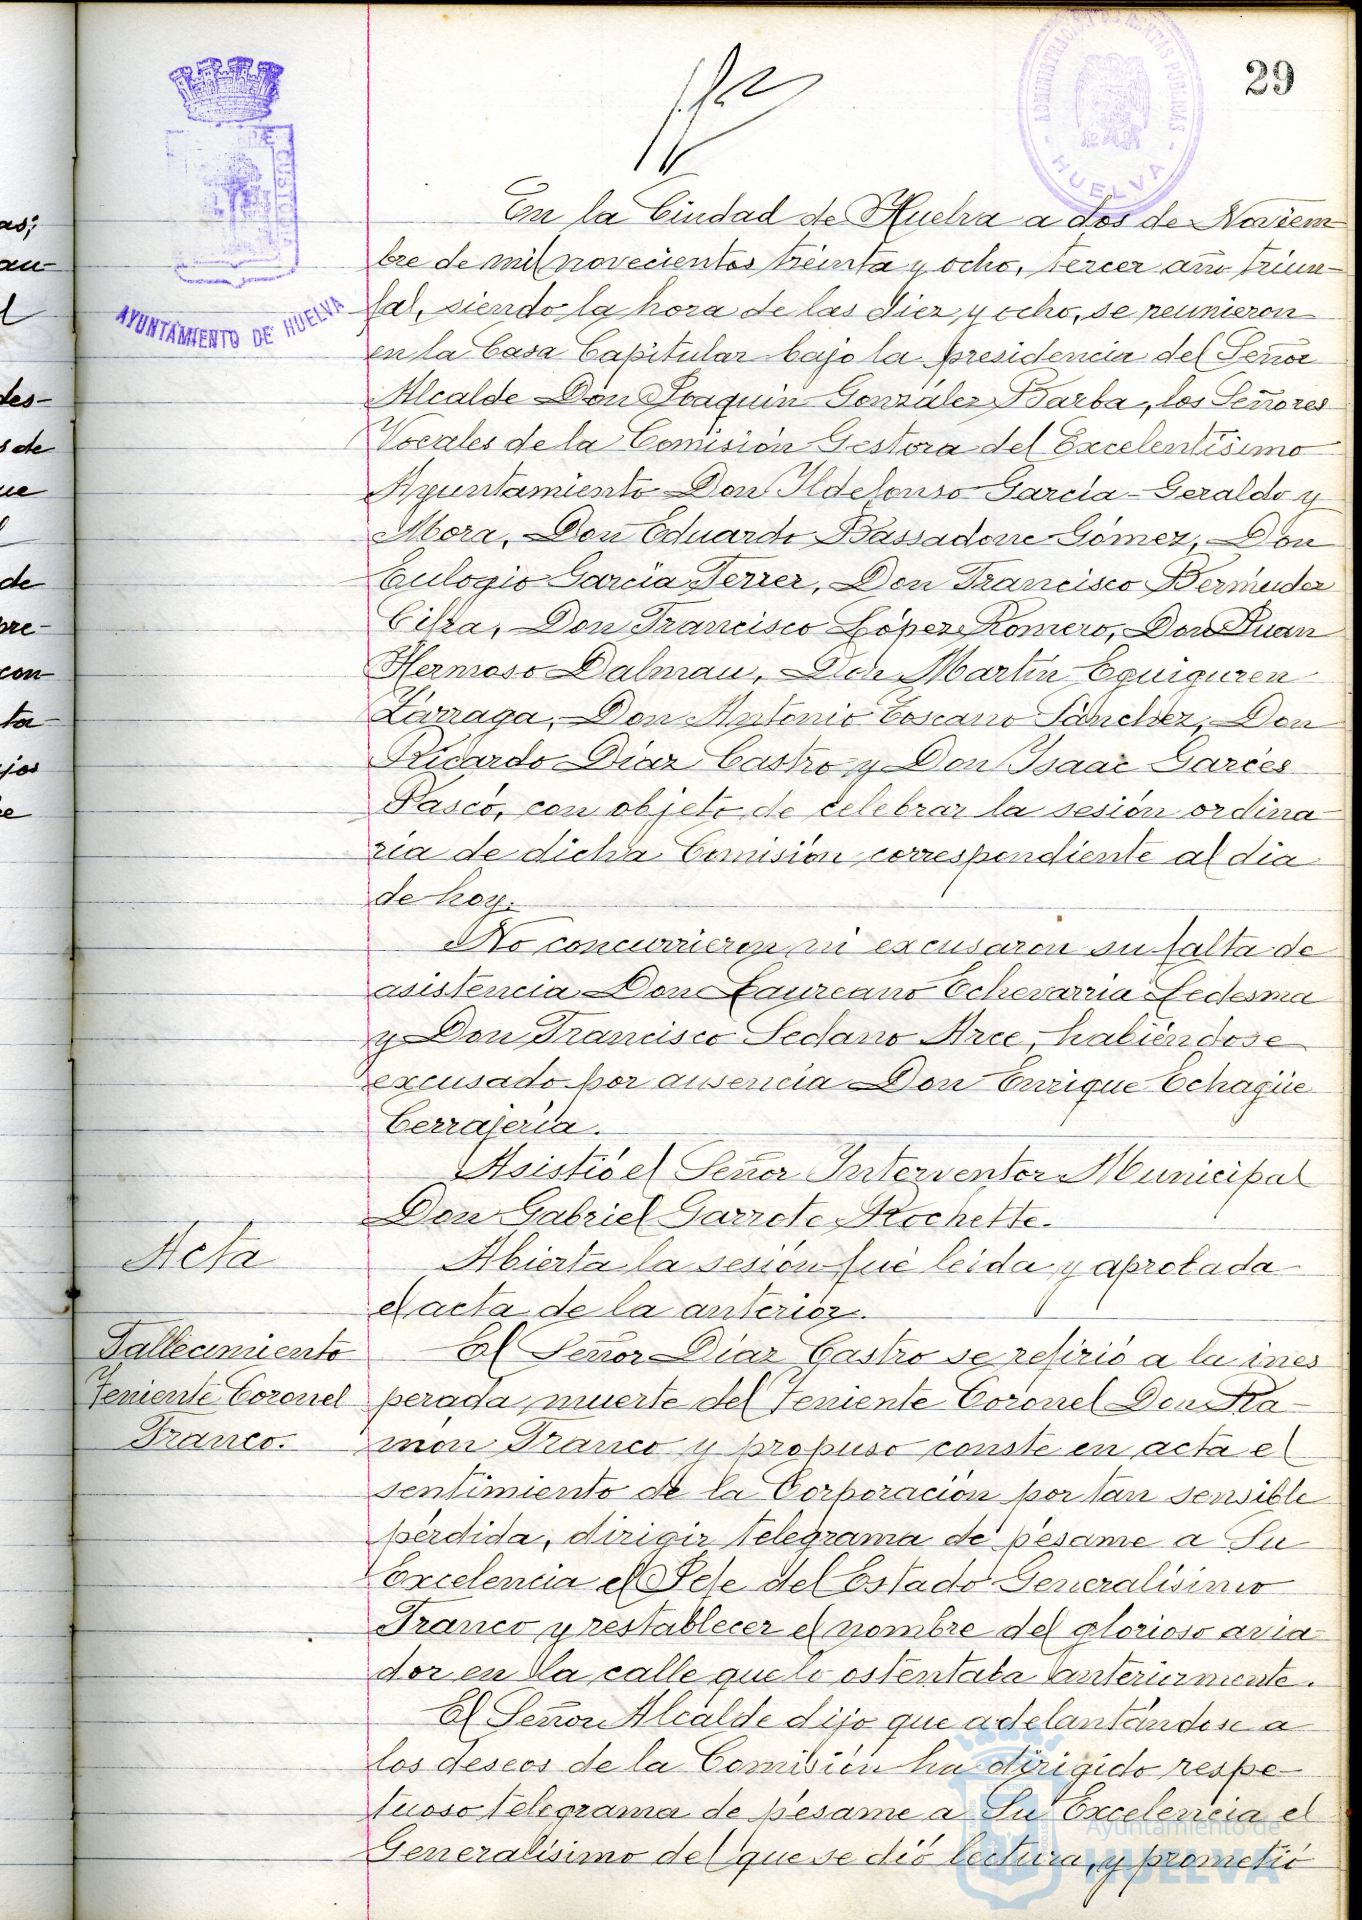 29
ADMINISTRACIÓN DE RENTAS PÚBLICAS
- HUELVA -
CUSTODIA
AYUNTAMIENTO DE HUELVA
En la Ciudad de Huelva a dos de Noviem-
bre de mil novecientos treinta y ocho, tercer año triun-
fal, siendo la hora de las diez y ocho, se reunieron
en la Casa Capitular bajo la presidencia del Señor
Alcalde Don Joaquin González Barba, los Señores
Vocales de la Comisión Gestora del Excelentísimo
Ayuntamiento Don Ildefonso García-Geraldo y
Mora, Don Eduardo Bassadone Gómez, Don
Eulogio García Ferrer, Don Francisco Bermúdez
Cifra, Don Francisco López Romero, Don Juan
Hermoso Dalmau, Don Martín Eguiguren
Lárraga, Don Antonio Toscano Sánchez, Don
Ricardo Díaz Castro y Don Isaac Garcés
Pascó, con objeto de celebrar la sesión ordina-
ria de dicha Comisión correspondiente al dia
de hoy.
No concurrieron ni excusaron su falta de
asistencia Don Laureano Echevarria Ledesma
y Don Francisco Sedano Arce, habiéndose
excusado por ausencia Don Enrique Echagüe
Cerrajería.
Asistió el Señor Interventor Municipal
Don Gabriel Garrote Rochette.
Acta
Abierta la sesión fué leida y aprobada
el acta de la anterior.
Fallecimiento
Teniente Coronel
Franco.
El Señor Díaz Castro se refirió a la ines
perada muerte del Teniente Coronel Don Ra-
món Franco y propuso conste en acta el
sentimiento de la Corporación por tan sensible
pérdida, dirigir telegrama de pésame a Su
Excelencia el Jefe del Estado Generalísimo
Franco y restablecer el nombre del glorioso avia
dor en la calle que lo ostentaba anteriormente.
El Señor Alcalde dijo que adelantándose a
los deseos de la Comisión ha dirigido respe-
tuoso telegrama de pésame a Su Excelencia el
Generalísimo del que se dió lectura, y prometió
Ayuntamiento de
HUELVA
as;
au-
l
des-
s de
ue
de
pre-
con
ta-
jos
e